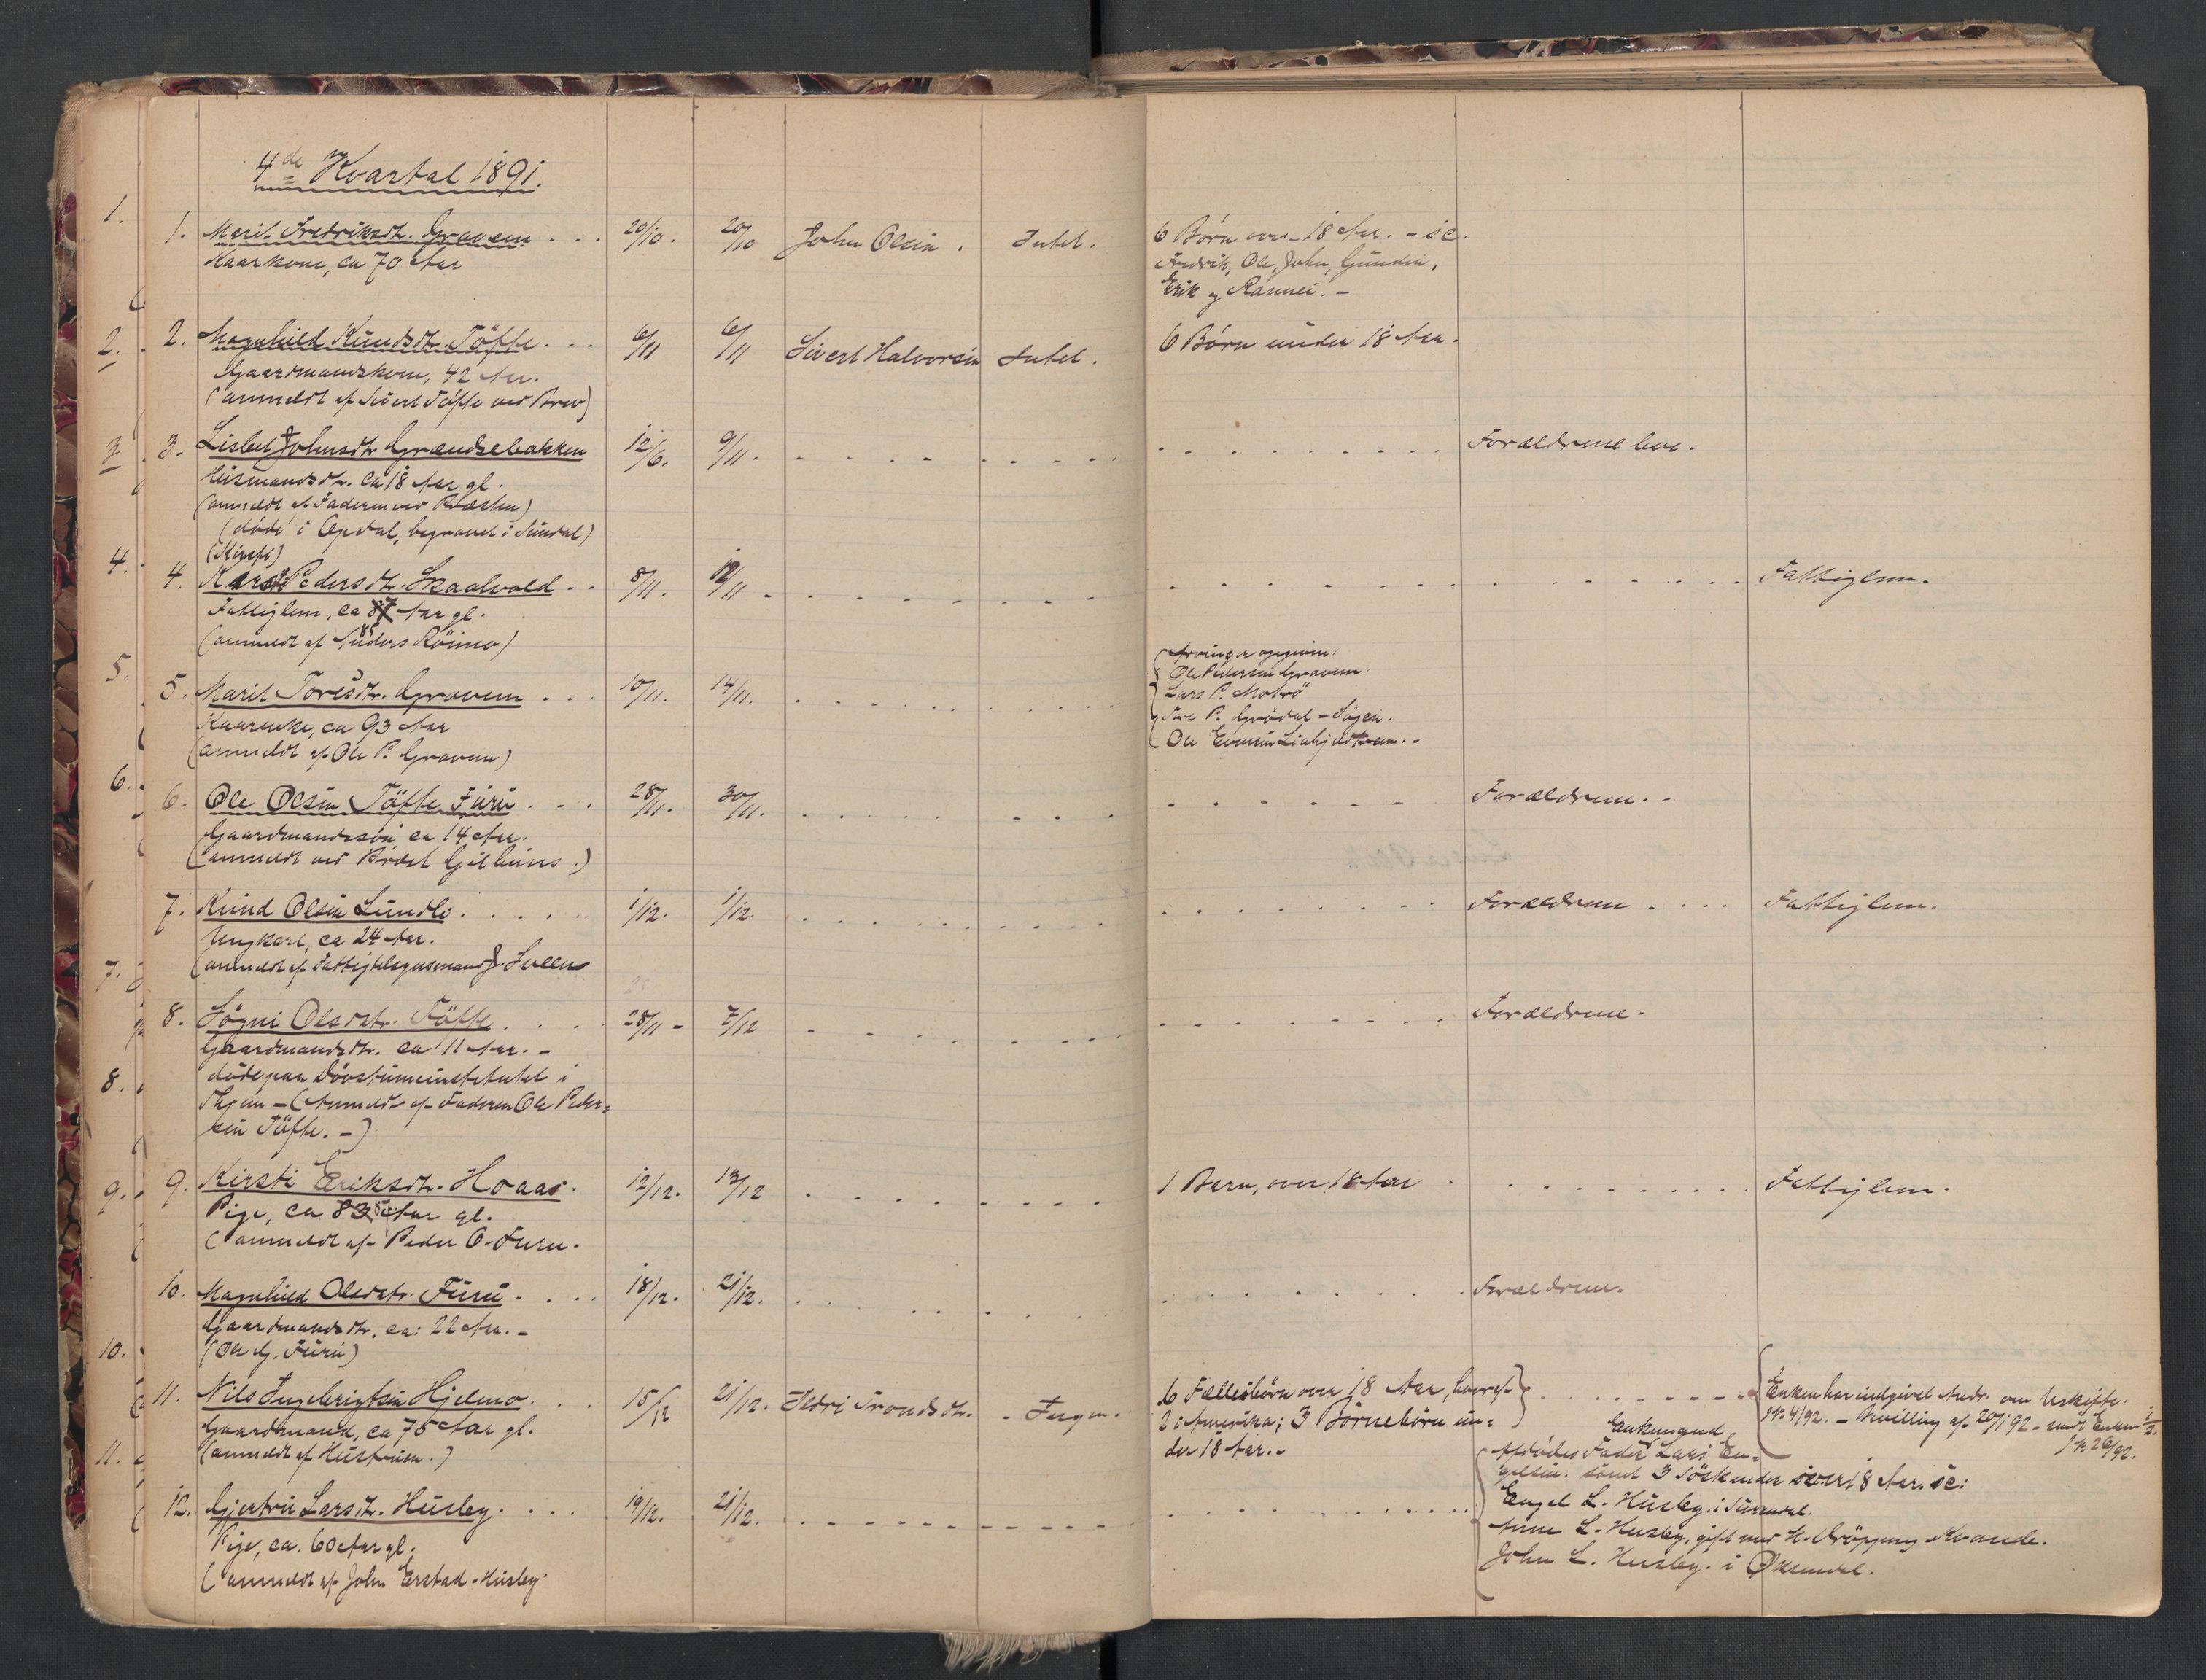 4de Kvartal 1891.
1. 1. Marit Fredriksdtr. Gravem . . . 20/10. 20/10 John Olsen . Intet. 6 Børn over 18 Aar. - sc.
Kaarkone, ca 70 Aar Fredrik, Ole, John, Gunder,
Erik og Rannei. -
2. 2. Magnhild Knudsdtr. Töfte . . . 6/11 6/11 Sivert Halvorsen Intet. 6 Børn under 18 Aar.
Gaardmandskone, 42 Aar.
(anmeldt af Sivert Töfte ved Brev)
3 3. Lisbet Johnsdtr Grændsebakken 12/6. 9/11. Forældrene leve.
Husmandsdtr. ca 18 Aar gl.
(anmeldt af Faderen ved Præsten)
(døde i Opdal, begravet i Sundal)
(Kirsti)
4. 4. Pedersdtr. Skaalvold . . 8/11. 12/11 Fattiglem.
Fattiglem, ca 87 Aar gl.
85
(anmeldt af Anders Röimo)
5. 5. Marit Toresdtr. Gravem . . . 10/11. 14/11.
Arvinger opgiven:
Ole Pedersen Gravem.
Lars P. Molvö
Tore P. Grödal - Søgen.
Ole Evensen
Kaarenke, ca 93 Aar
(anmeldt af Ole P. Gravem)
6. 6. Ole Olsen Töfte Furu . . . 28/11. 30/11. Forældrene. -
Gaardmandssön, ca 14 Aar.
(anmeldt ved Bröst Gikling .)
7. Knud Olsen Lundli . . . . . 1/12. 1/12. Forældrene . . . . Fattiglem.
Ungkarl, ca 24 Aar.
7. (anmeldt af Fattigtilsynsmand J. Sveen
8. Sögni Olsdtr. Töfte . . . . 28/11 - 7/12 Forældrene.
Gaardmandsdtr. ca 11 Aar. -
8. døde paa Døvstumeinstitutet i
Thjem - (Anmeldt af Faderen Ole Peder=
sen Töfte. -)
9. 9. Kirsti Eriksdtr. Hoaas. 12/12. 13/12 1 Barn, over 18 Aar Fattiglem.
Pige, ca 83 Aar gl.
(anmeldt af Peder O. Furu.
10. Magnhild Olsdtr. Furu . . . . 18/12. 21/12. Forældrene.
Gaardmandsdtr. ca: 22 Aar. -
10. (Ole G. Furu)
11. Nils Ingebrigtsen Hjelmo . . . 15/12 21/12. Ildri Trondsdtr. - Ingen. 6 Fællesbörn over 18 Aar, hvoraf Enken har indgivet Andr. om Uskifte.
Gaardmand, ca 75 Aar gl. 2 i Amerika; 3 Börnebörn un= J.N. 4/92. - Bevilling af 20/1 92 - sendt Enken 1/2.
11. (anmeldt af Hustruen.) der 18 Aar. - J.N. 26/92.
12. Gjertru Larsdtr. Husby . . . . 19/12. 21/12.
Afdødes Fader Lars En=
gelsen. samt 3 Söskende over 18 Aar. sc:
Engel L. Husby. i Surendal.
Anne L. Husby, gift med H. Dröpping Kvande.
John L. Husby. i Øxendal.
Pige, ca. 60 Aar gl.
(anmeldt af John Erstad-Husby.